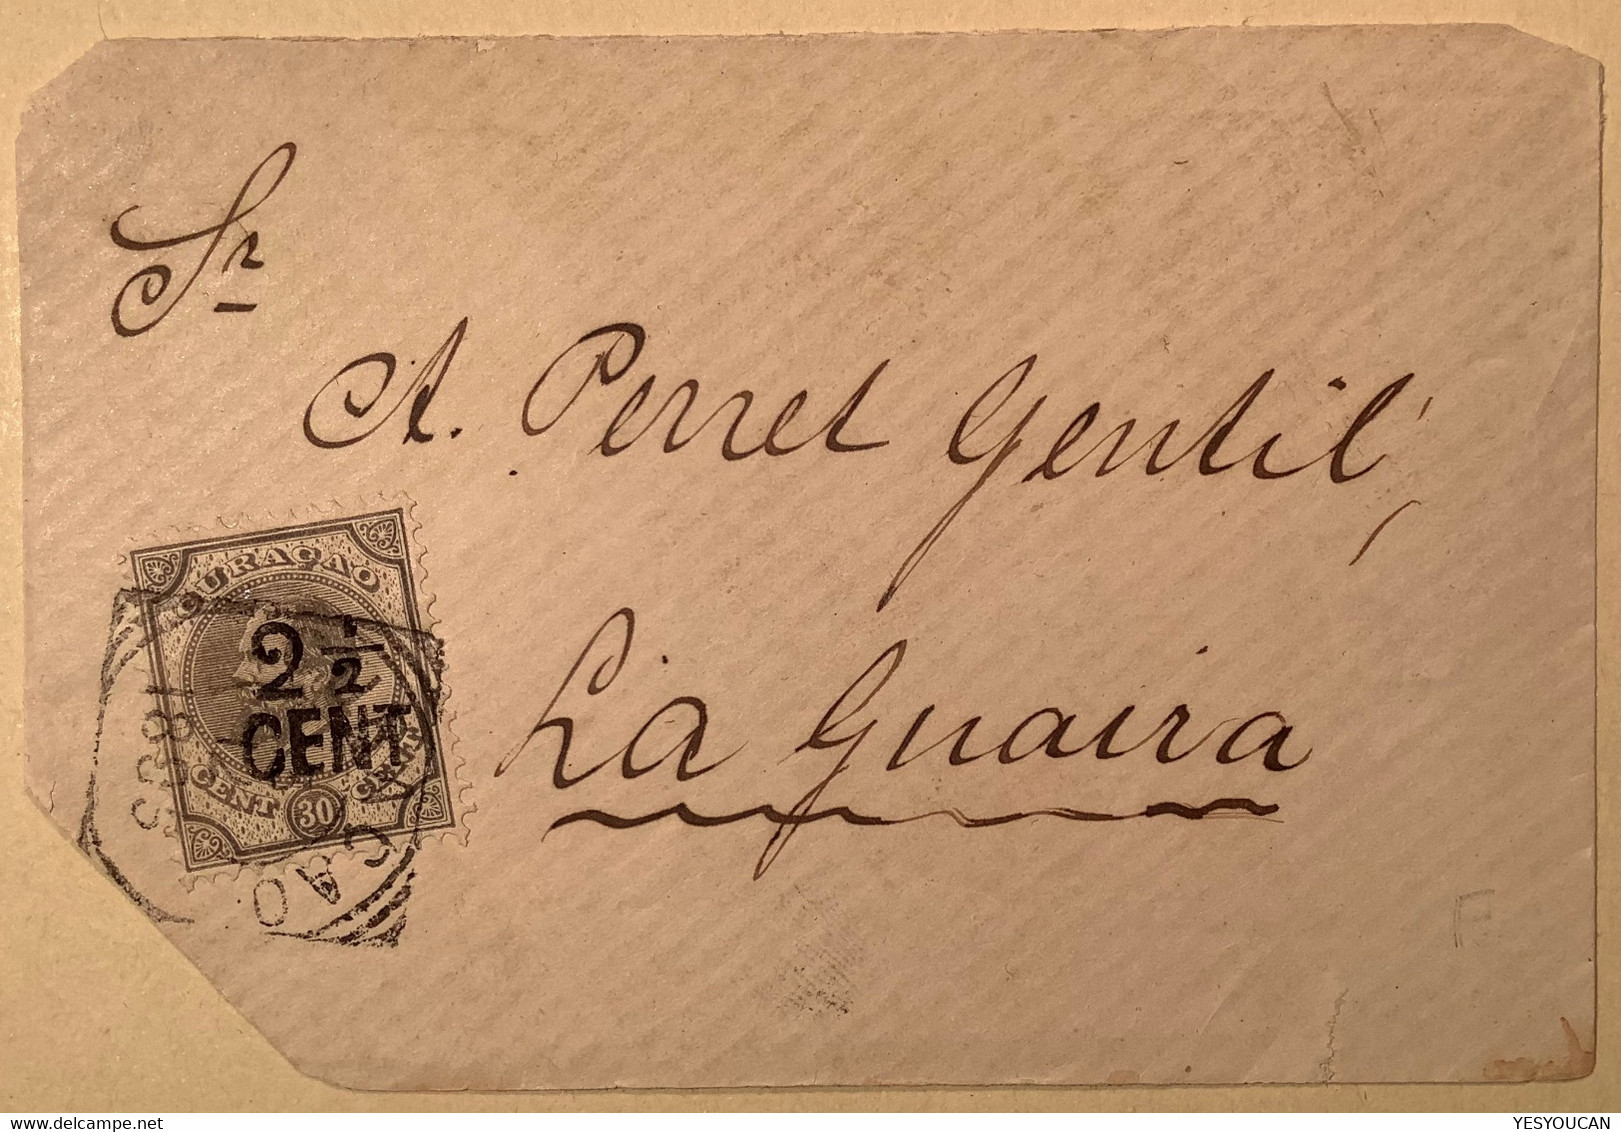 Sr
A. Perret Gentil,
La Guaira
CURAÇAO
2 1/2
CENT
CENT 30 CENT
1895
CAO
F
delcampe.net
YESYOUCAN